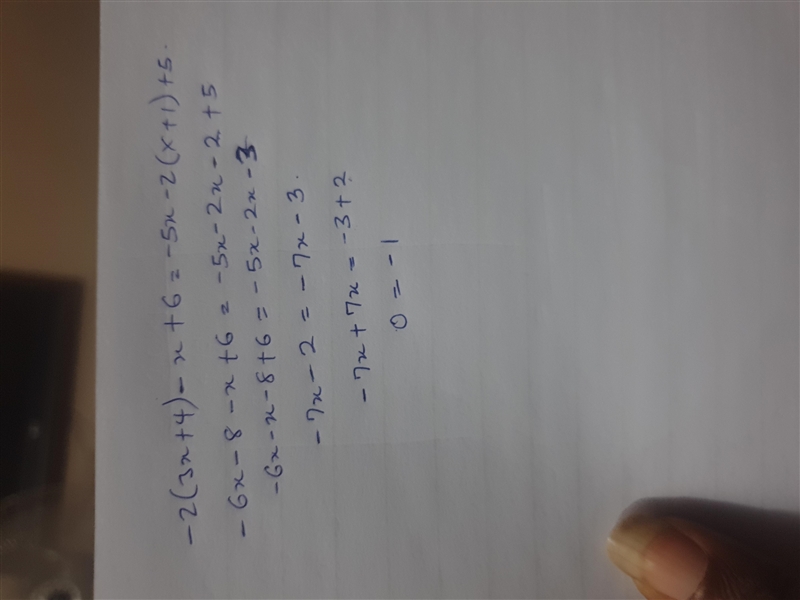 -2(3x+4)-x+6=-5x-2(x+1)+5.
-6x-8-x+6=-5x-2x-2+5
-6x-x-8+6=-5x-2x-3
-7x-2=-7x-3.
-7x+7x=-3+2
0=-1